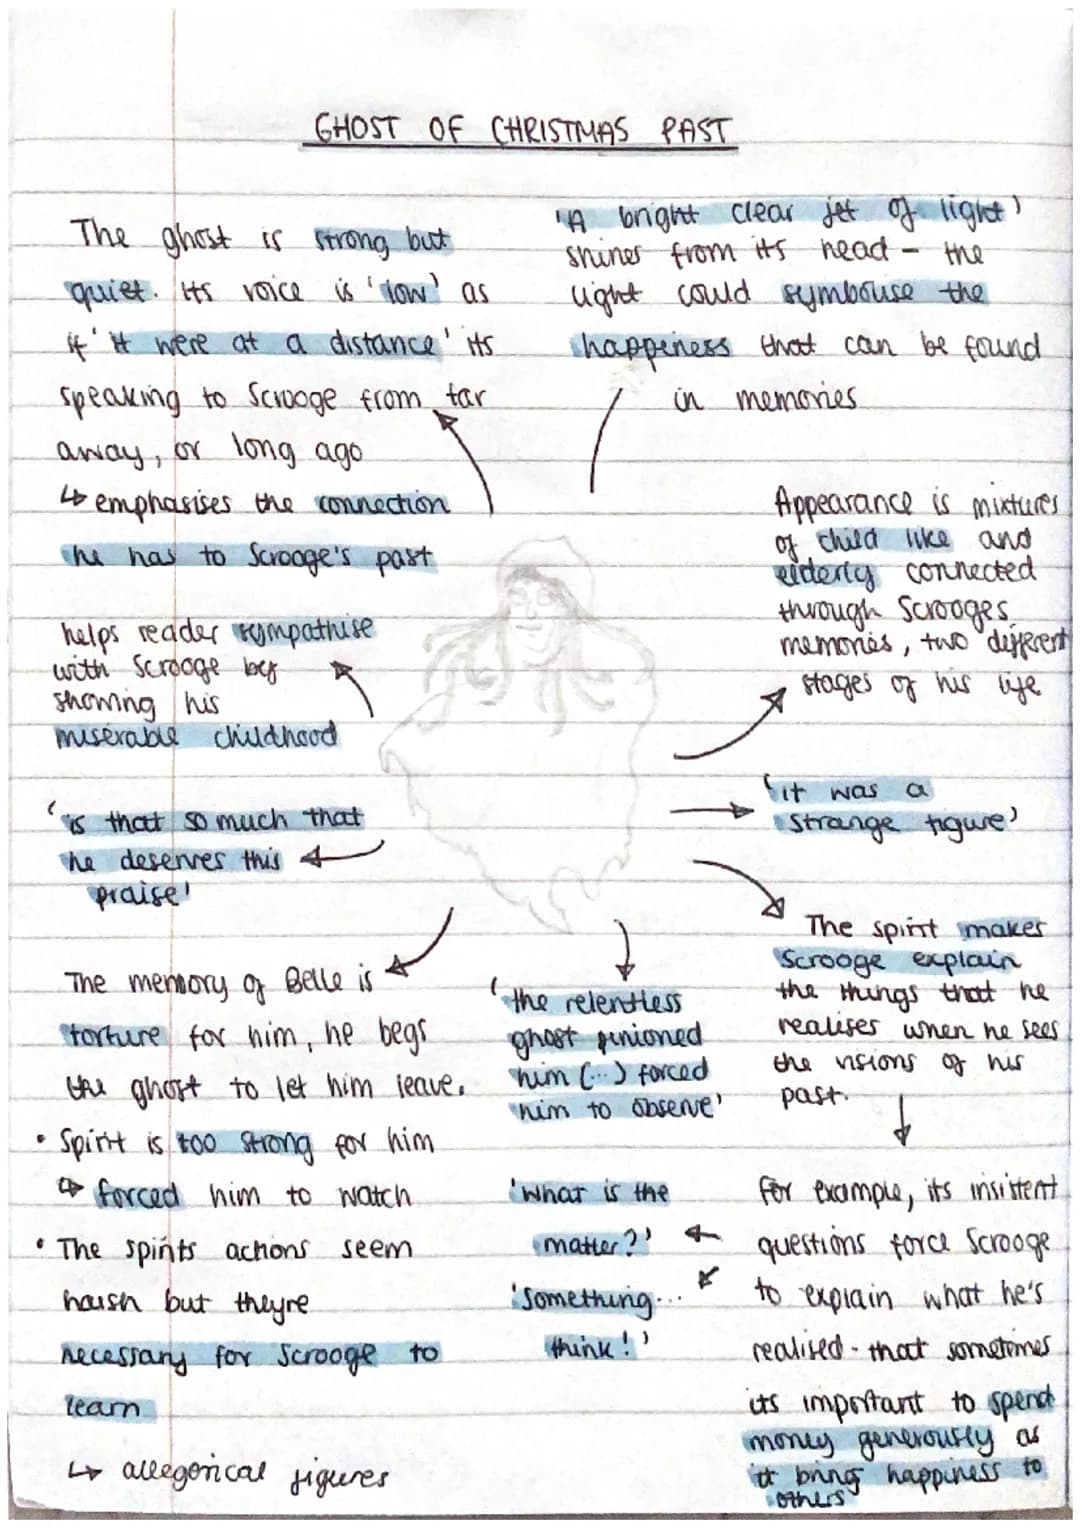 GHOST OF CHRISTMAS PAST
The ghost is strong but
quiet. Its voice is 'low' as
if 'it were at a distance' its
speaking to Scrooge from far
away, or long ago
↳ emphasises the connection
he has to Scrooge's past
'A bright clear jet of light'
shines from its head - the
light could symbolise the
happiness that can be found
in memories
Appearance is mixtures
of child like and
elderly connected
through Scrooges
memories, two different
stages of his life
helps reader sympathise
with Scrooge by
showing his
miserable childhood
'it was a
strange figure'
'is that so much that
he deserves this
praise'
The memory of Belle is
torture for him, he begs
the ghost to let him leave.
• Spirit is too strong for him
↳ forced him to watch
• The spirits actions seem
harsh but theyre
necessary for Scrooge to
learn
↳ allegorical figures
'the relentless
ghost pinioned
him (...) forced
him to observe'
The spirit makes
Scrooge explain
the things that he
realises when he sees
the visions of his
past.
for example, its insistent
questions force Scrooge
to explain what he's
realised - that sometimes
its important to spend
money generously as
it bring happiness to
others
'What is the
matter?'
'Something...
think!'